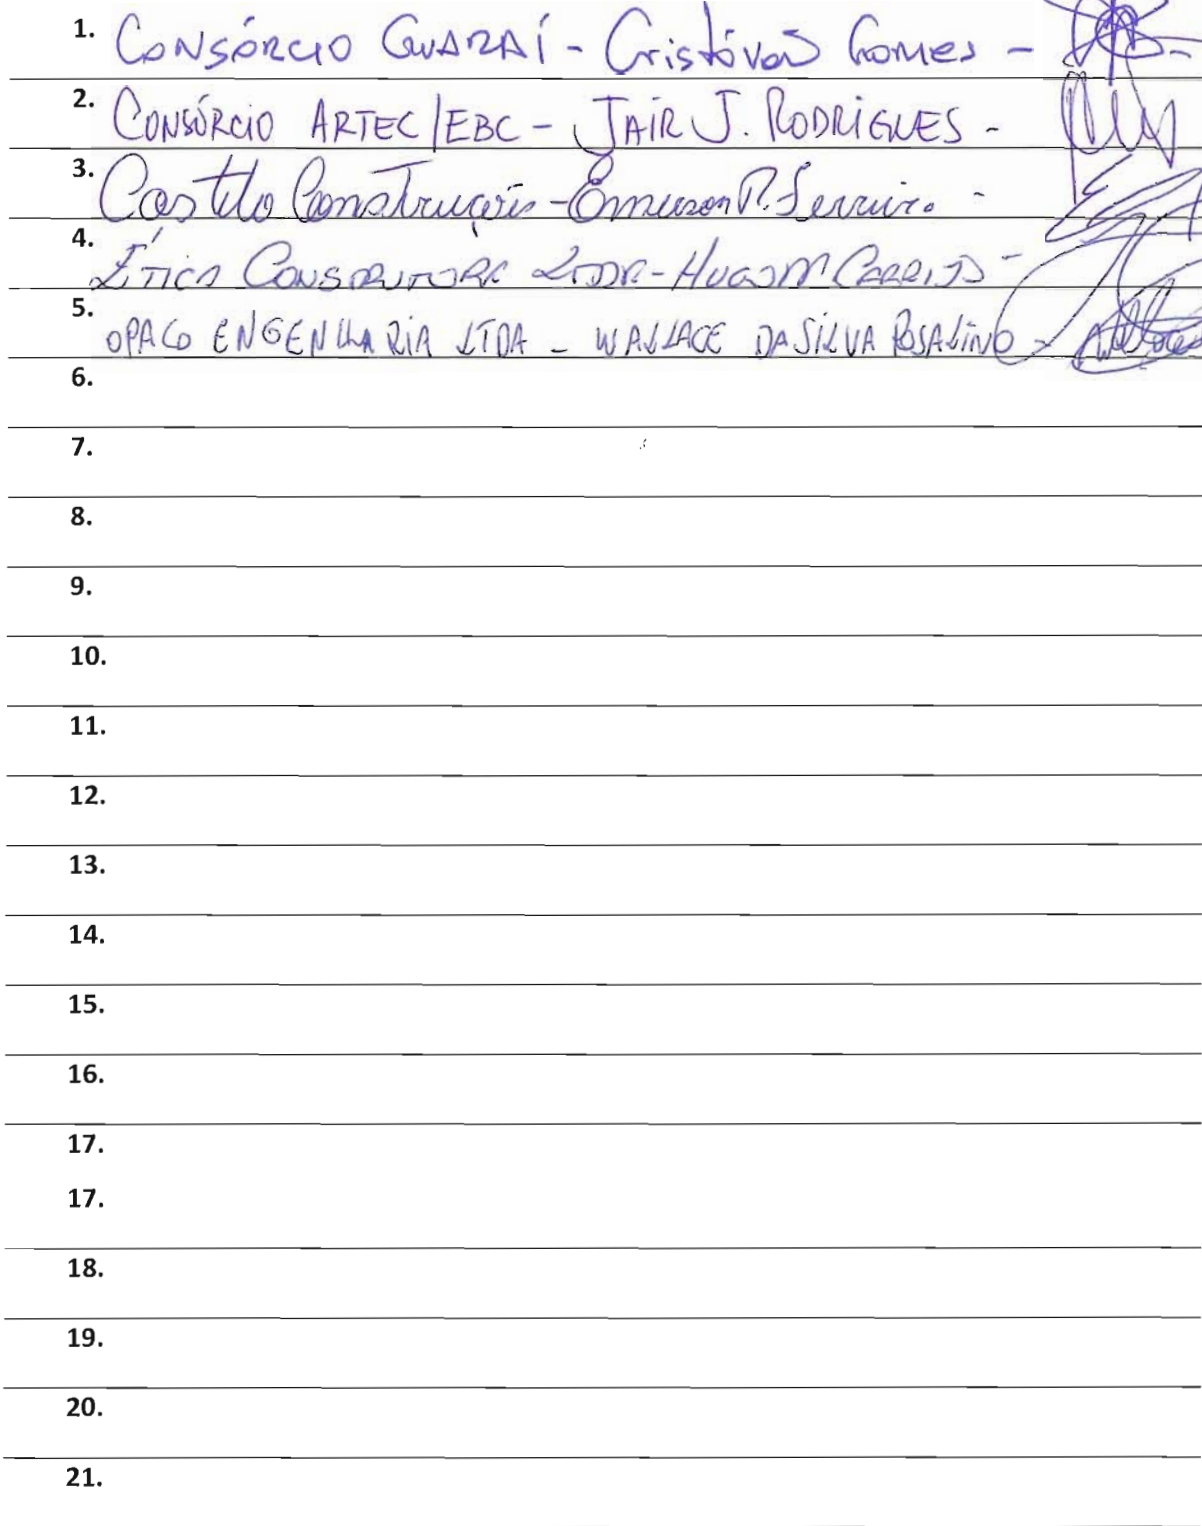 1. CONSÓRCIO GUARAÍ - Cristóvão Gomes -
2. CONSÓRCIO ARTEC/EBC - JAIR J. RODRIGUES -
3. Castelo Construções - Emerson R. Ferreira -
4. ÉTICA CONSTRUTORA LTDA - HUGO M CARRIJO -
5. OPAÇO ENGENHARIA LTDA - WALLACE DA SILVA ROSALINO -
6.
7.
8.
9.
10.
11.
12.
13.
14.
15.
16.
17.
17.
18.
19.
20.
21.